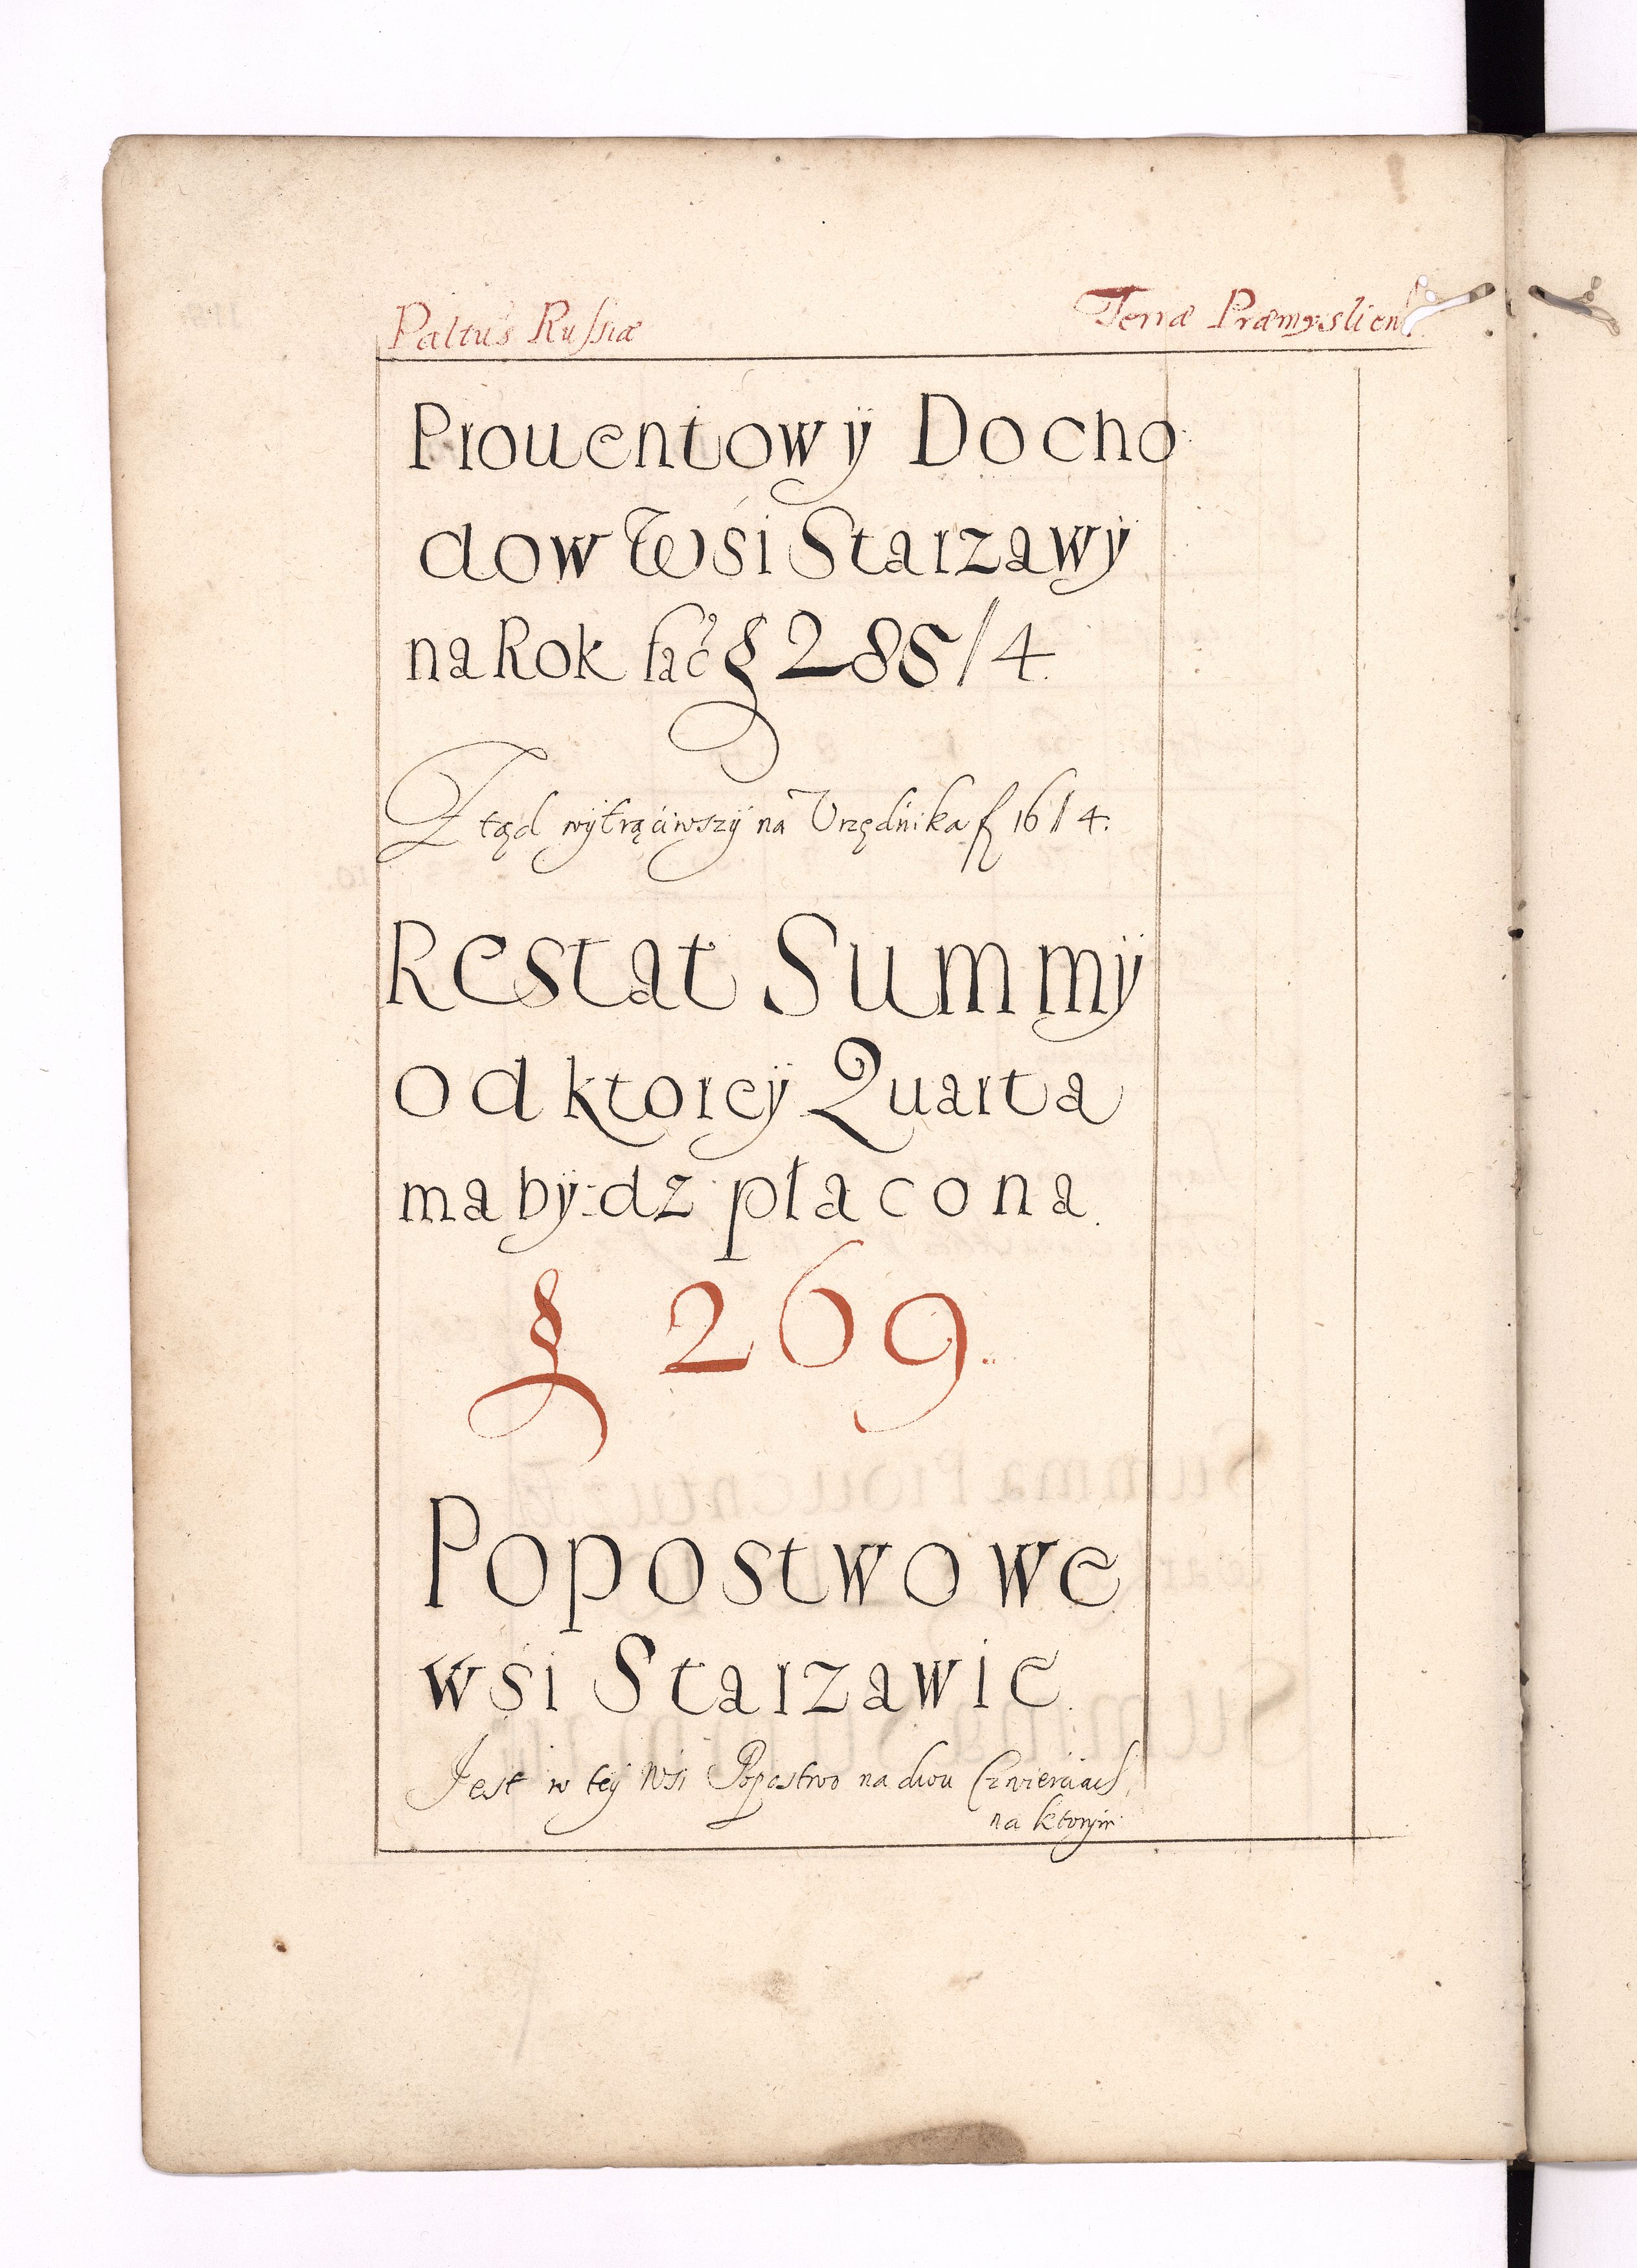 Paltus Russiæ Terræ Præmysliens
Prouentowÿ Docho
dow Wsi Starzawÿ
na Rok fac̃ § 285/4.
Ztąd wÿtrąciwszÿ na Vrzędnika f 16 // 4.
Restat Summÿ
od ktoreÿ Quarta
ma bÿdz płacona.
§ 269.
Popostwo we
wsi Starzawie.
Jest w teÿ Wsi Popostwo na dwu Czwierciach,
na ktorÿm